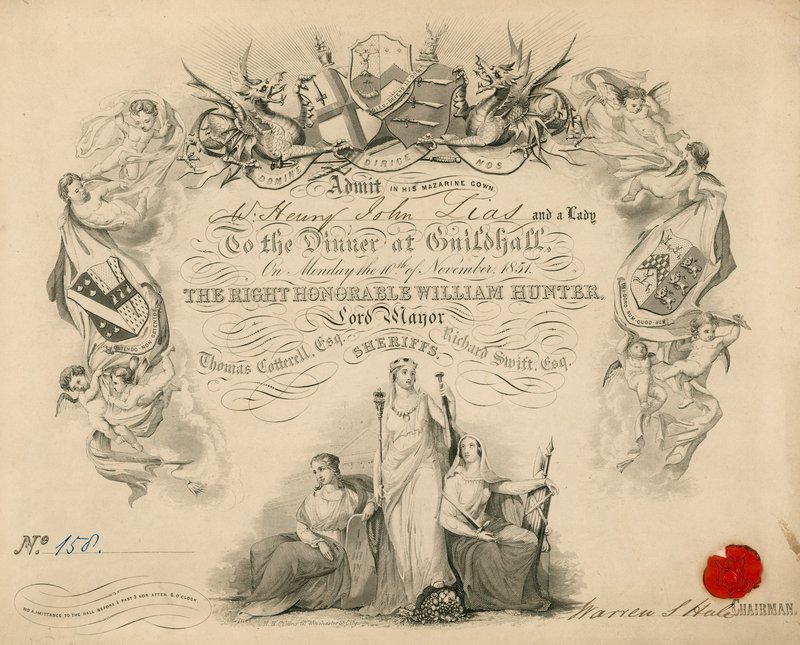 DOMINE DIRIGE NOS
Admit IN HIS MAZARINE GOWN.
Wm. Henry John Lias and a Lady
To the Dinner at Guildhall,
On Monday the 10th of November, 1851.
THE RIGHT HONORABLE WILLIAM HUNTER,
Lord Mayor
Thomas Cotterell, Esq. Richard Swift, Esq.
SHERIFFS.
No. 158.
NO ADMITTANCE TO THE HALL BEFORE ½ PAST 3 NOR AFTER 6 O'CLOCK.
Warren S Hale CHAIRMAN.